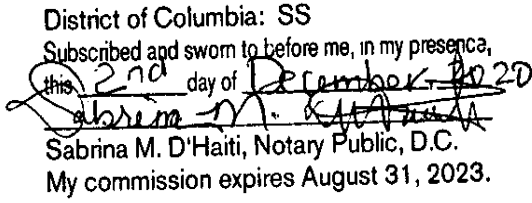 District of Columbia: SS
Subscribed and sworn to before me, in my presence,
this 2nd day of December, 2020
Sabrina M. D'Haiti
Sabrina M. D'Haiti, Notary Public, D.C.
My commission expires August 31, 2023.